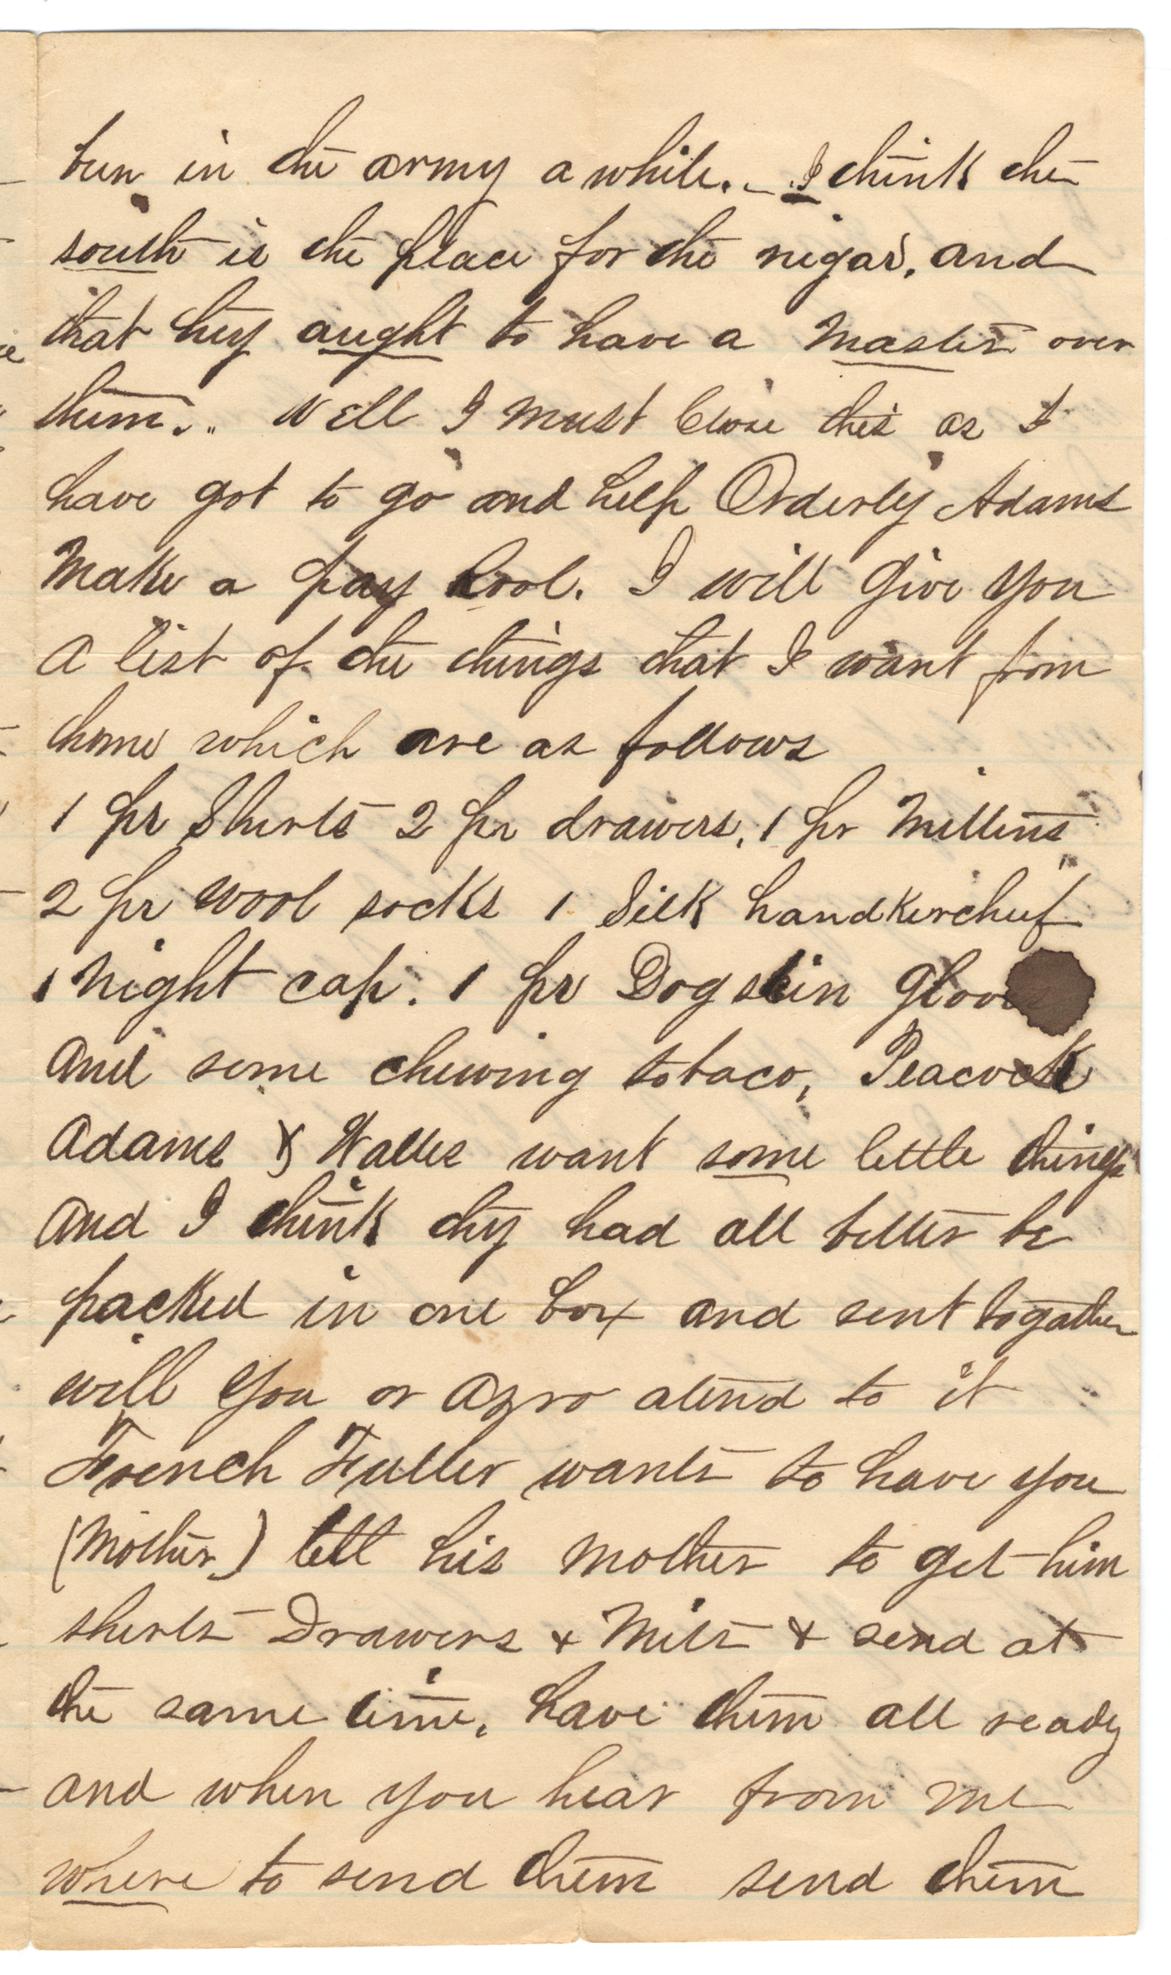 been in the army a while. I think the
south is the place for the nigar, and
that they aught to have a Master over
them. Well I must Close this as I
have got to go and help Orderly Adams
Make a pay Rool. I will give you
a list of the things that I want from
home which are as follows
1 pr Shirts 2 pr drawers, 1 pr Mittens
2 pr wool socks 1 Silk handkerchief
1 Night cap. 1 pr Dogskin gloves
and some chewing tobaco, Peacock
Adams & Walles want some little things
and I think they had all better be
packed in one box and sent togather
will you or Azro atend to it
French Fuller wants to have you
(Mother) tell his Mother to get him
shirts Drawers + Mits + send at
the same time, have them all ready
and when you hear from me
where to send them send them